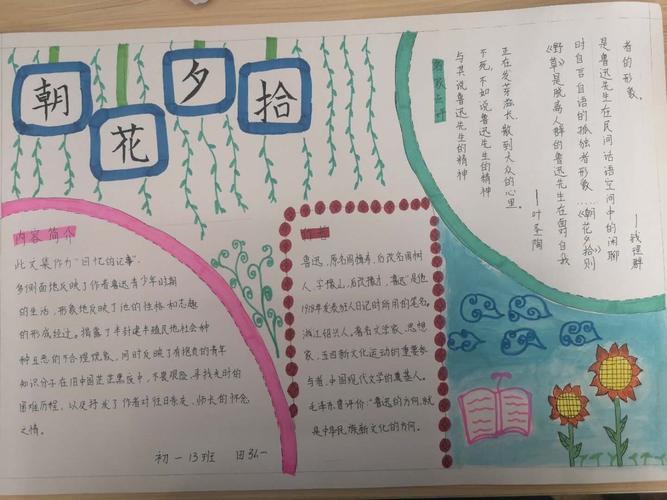 朝花夕拾
内容简介
此文集作为“回忆的记事”
多侧面地反映了作者鲁迅青少年时期
的生活,形象地反映了他的性格和志趣
的形成经过。揭露了半封建半殖民地社会种
种丑恶的不合理现象,同时反映了有抱负的青年
知识分子在旧中国茫茫黑夜中,不畏艰险,寻找光明的
困难历程,以及抒发了作者对往日亲友、师长的怀念
之情。
初一13班 田
作者
鲁迅,原名周樟寿,后改名周树
人,字豫山,后改豫才,“鲁迅”是他
1918年发表狂人日记时所用的笔名。
浙江绍兴人。著名文学家、思想
家,五四新文化运动的重要参
与者,中国现代文学的奠基人。
毛泽东曾评价:“鲁迅的方向,就
是中华民族新文化的方向。
名家
与其说鲁迅先生的精神
不死,不如说鲁迅先生的精神
正在发芽滋长,散到大众的心里。
——叶圣陶
《野草》是脱离人群的鲁迅先生在面对自我
时自言自语的孤独者形象……《朝花夕拾》则
是鲁迅先生在民间话语空间中的闲聊
者的形象。
——钱理群